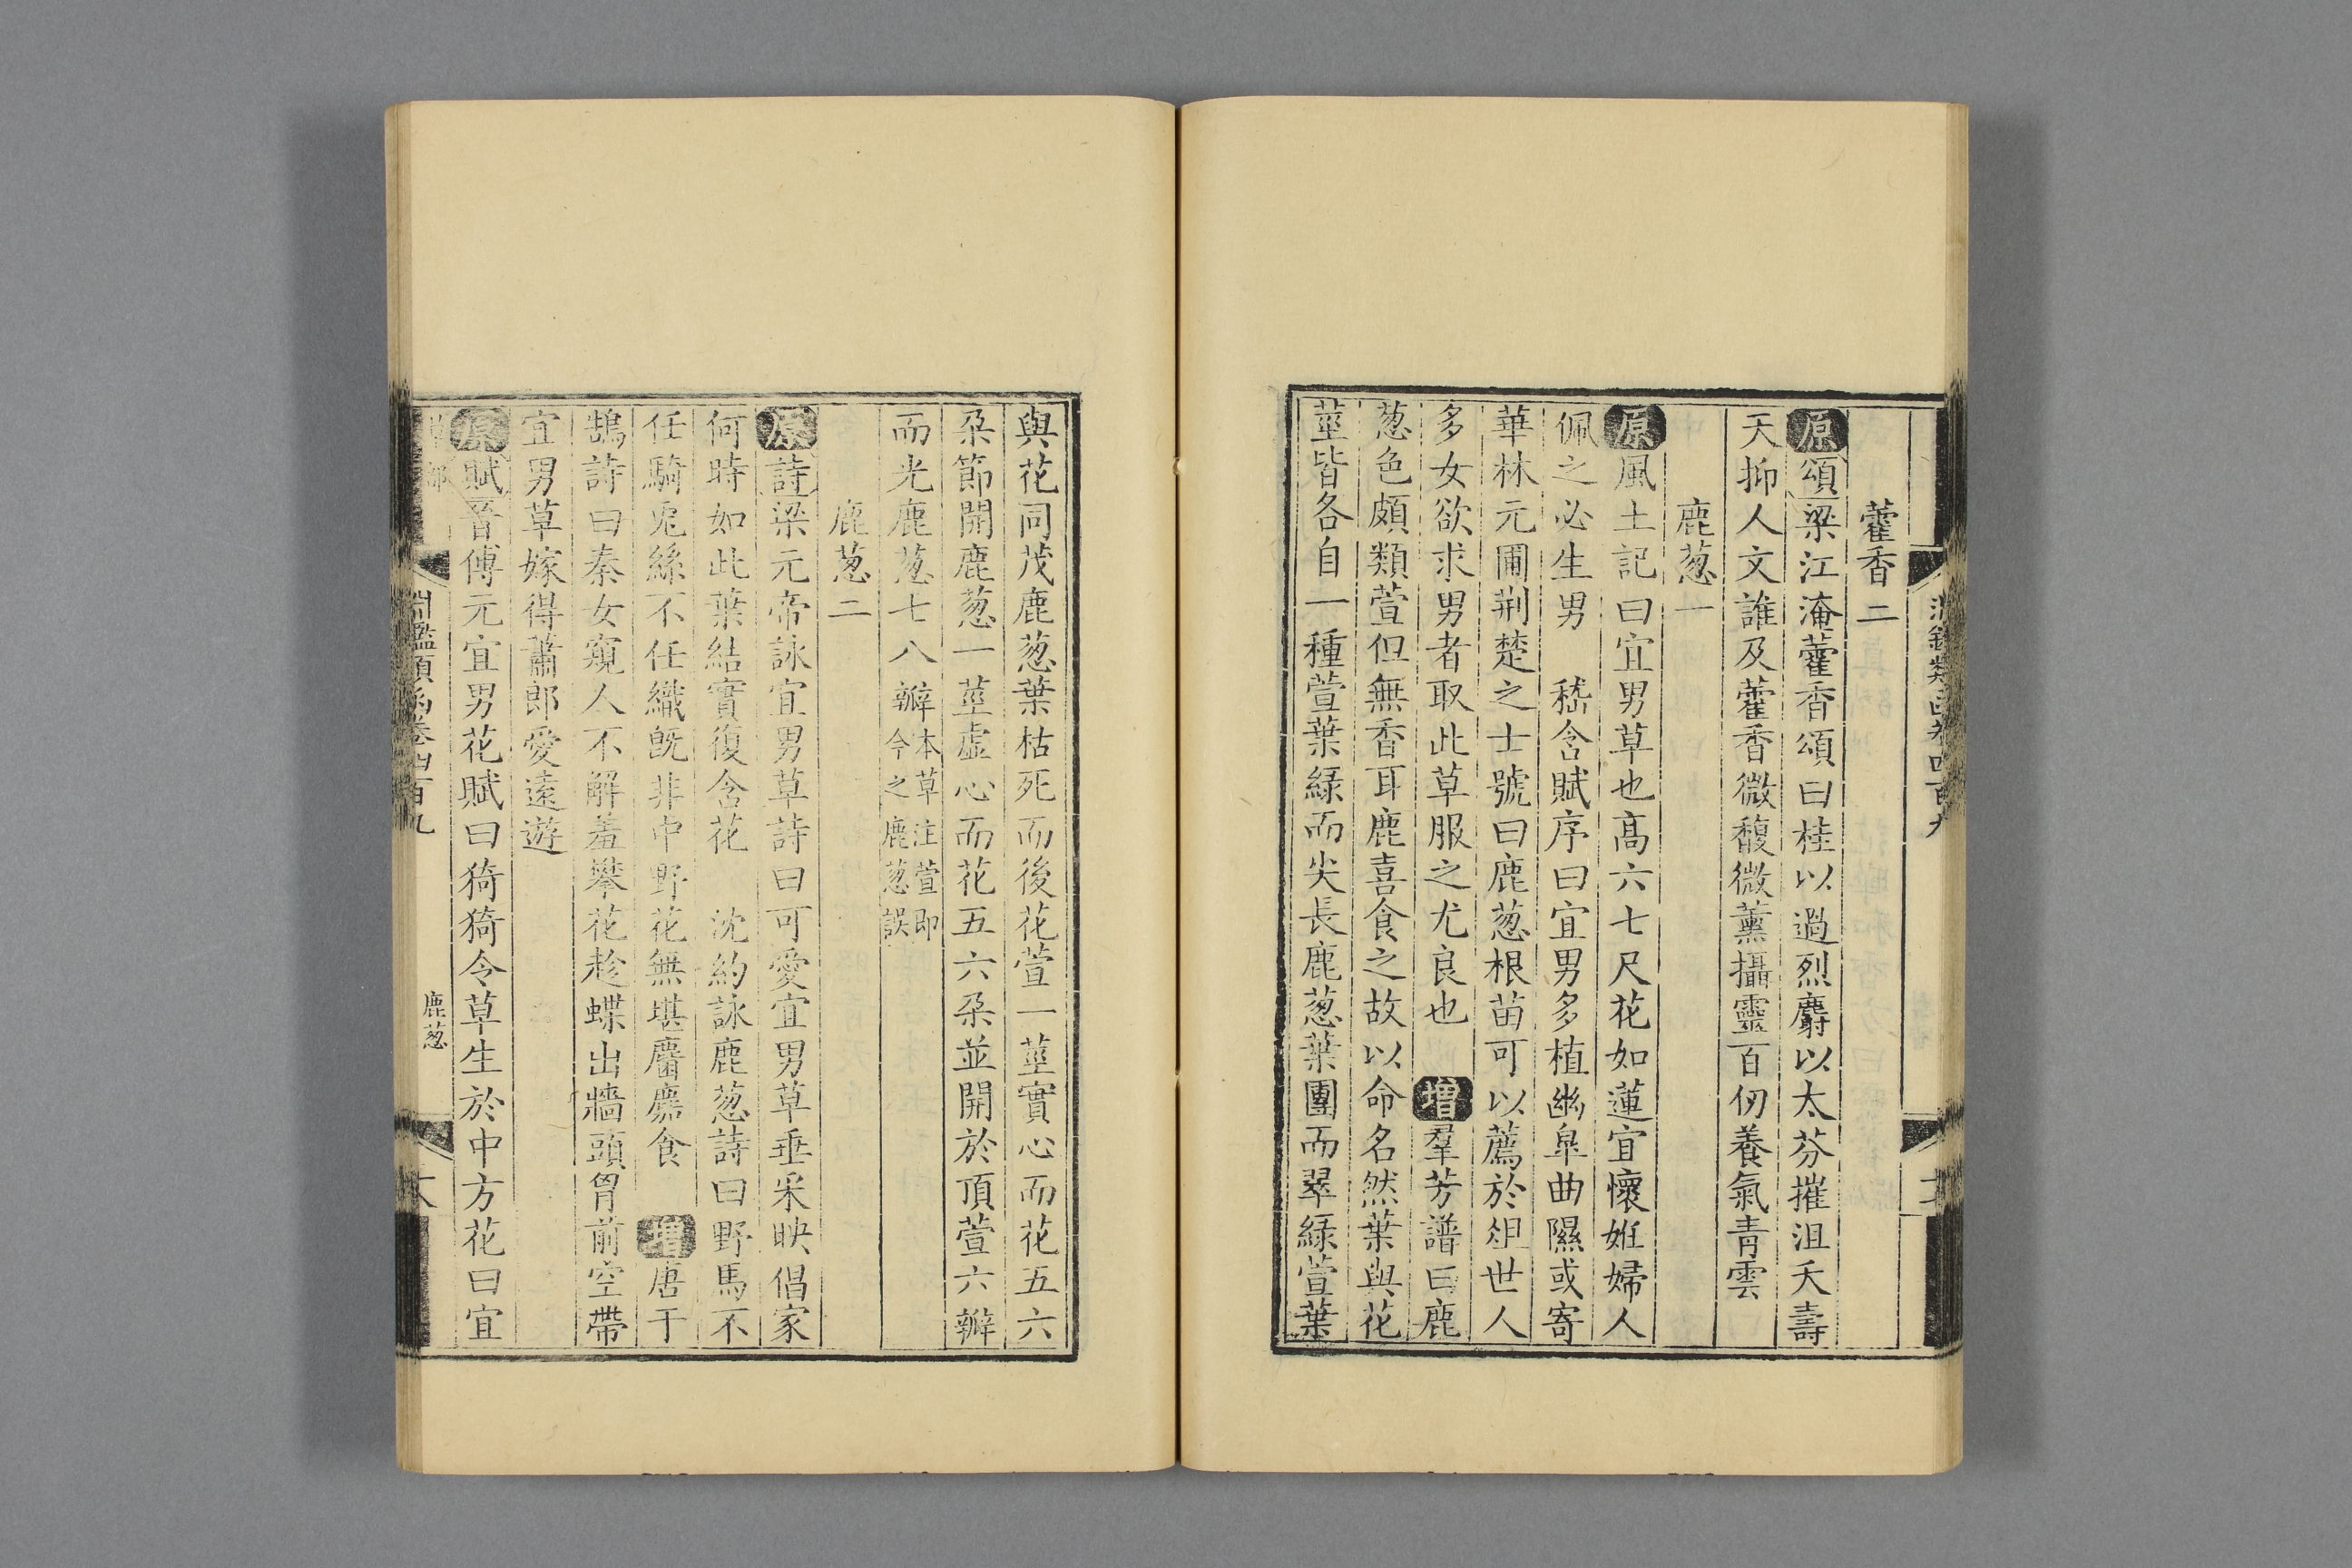 淵鑑類函卷四百九
藿香二
原頌梁江淹藿香頌曰桂以過烈麝以太芬摧沮夭壽
天抑人文誰及藿香微馥微薰攝靈百仞養氣青雲
鹿葱一
原風土記曰宜男草也高六七尺花如蓮宜懷姙婦人
佩之必生男　嵇含賦序曰宜男多植幽皐曲隰或寄
華林元圃荆楚之士號曰鹿葱根苗可以薦於俎世人
多女欲求男者取此草服之尤良也　增羣芳譜曰鹿
葱色頗類萱但無香耳鹿喜食之故以命名然葉與花
莖皆各自一種萱葉綠而尖長鹿葱葉團而翠綠萱葉
與花同茂鹿葱葉枯死而後花萱一莖實心而花五六
朶節開鹿葱一莖虛心而花五六朶並開於頂萱六瓣
而光鹿葱七八瓣本草注萱即今之鹿葱誤
鹿葱二
原詩梁元帝詠宜男草詩曰可愛宜男草垂采映倡家
何時如此葉結實復含花　沈約詠鹿葱詩曰野馬不
任騎兎絲不任織旣非中野花無堪麏麚食　增唐于
鵠詩曰秦女窺人不解羞攀花趁蝶出牆頭胷前空帶
宜男草嫁得蕭郎愛遠遊
原賦晉傅元宜男花賦曰猗猗令草生於中方花曰宜
草部
淵鑑類函卷四百九
鹿葱